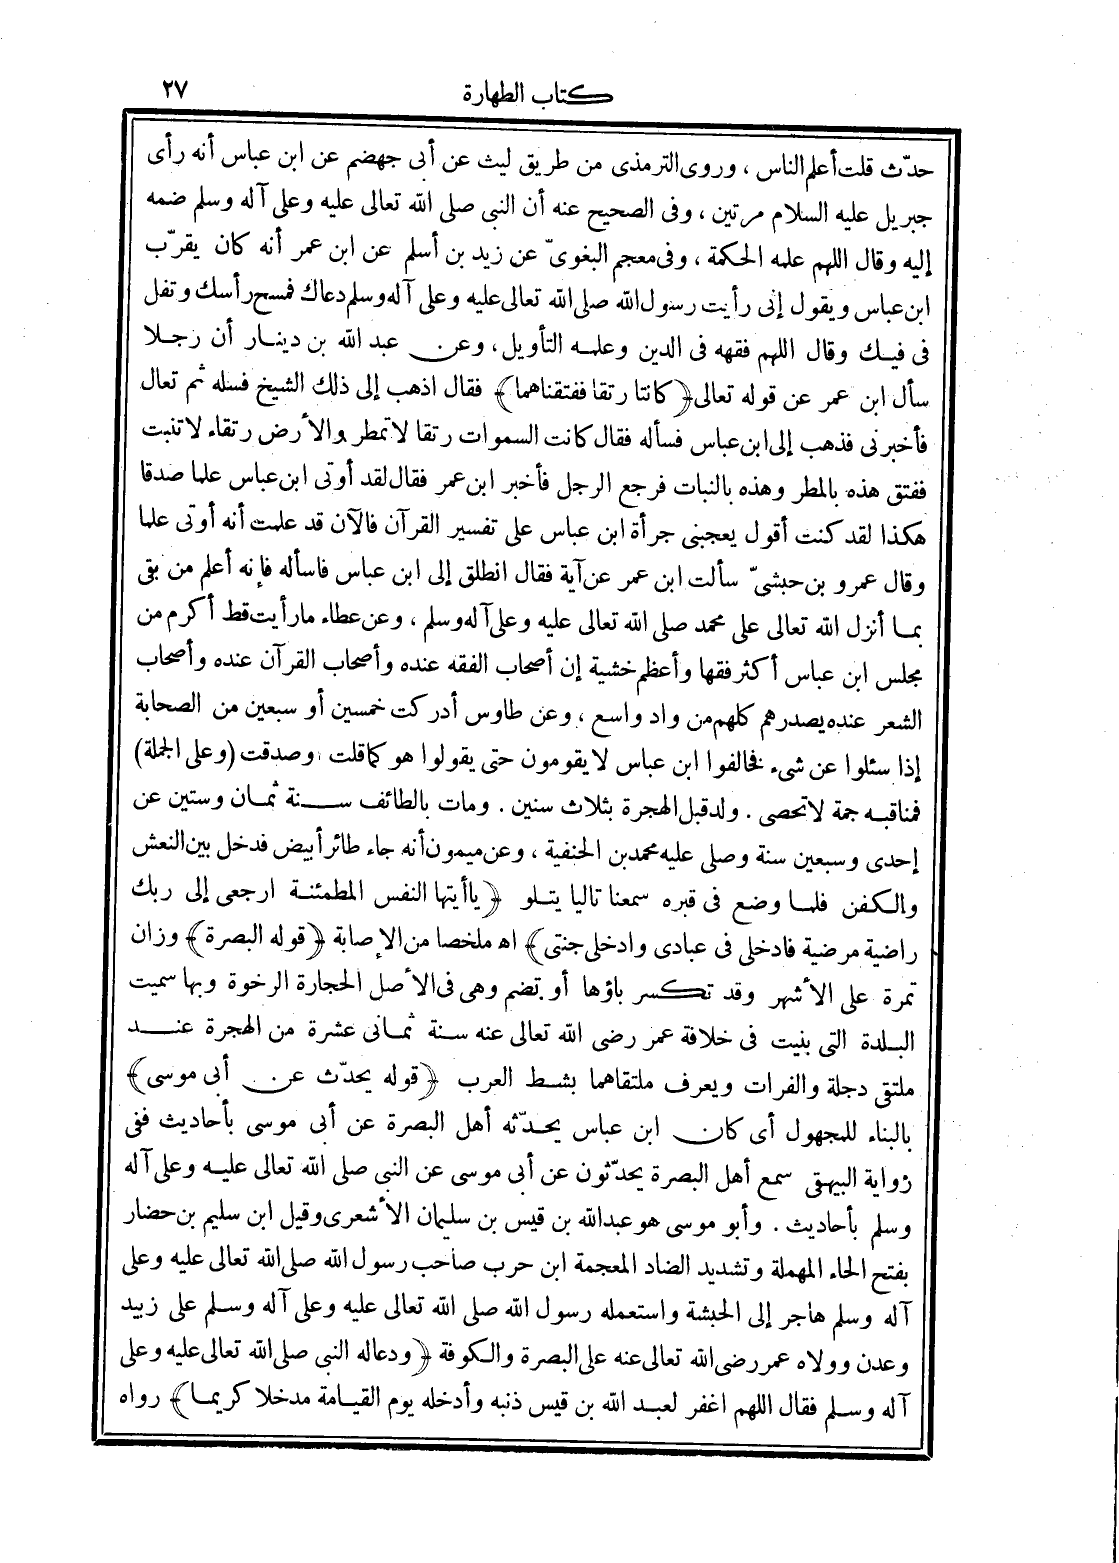 كتاب الطهارة ٢٧
حدّث قلت أعلم الناس ، وروى الترمذى من طريق ليث عن أبى جهضم عن ابن عباس أنه رأى
جبريل عليه السلام مرتين ، وفى الصحيح عنه أن النبى صلى الله تعالى عليه وعلى آله وسلم ضمه
إليه وقال اللهم علمه الحكمة ، وفى معجم البغوىّ عن زيد بن أسلم عن ابن عمر أنه كان يقرّب
ابن عباس ويقول إنى رأيت رسول الله صلى الله تعالى عليه وعلى آله وسلم دعاك فمسح رأسك وتفل
فى فيك وقال اللهم فقهه فى الدين وعلمه التأويل ، وعن عبد الله بن دينار أن رجلا
سأل ابن عمر عن قوله تعالى ﴿كانتا رتقا ففتقناهما﴾ فقال اذهب إلى ذلك الشيخ فسله ثم تعال
فأخبرنى فذهب إلى ابن عباس فسأله فقال كانت السموات رتقا لا تمطر والأرض رتقاء لا تنبت
ففتق هذه بالمطر وهذه بالنبات فرجع الرجل فأخبر ابن عمر فقال لقد أوتى ابن عباس علما صدقا
هكذا لقد كنت أقول يعجبنى جرأة ابن عباس على تفسير القرآن فالآن قد علمت أنه أوتى علما
وقال عمرو بن حبشىّ سألت ابن عمر عن آية فقال انطلق إلى ابن عباس فاسأله فإنه أعلم من بقى
بما أنزل الله تعالى على محمد صلى الله تعالى عليه وعلى آله وسلم ، وعن عطاء ما رأيت قط أكرم من
مجلس ابن عباس أكثر فقها وأعظم خشية إن أصحاب الفقه عنده وأصحاب القرآن عنده وأصحاب
الشعر عنده يصدرهم كلهم من واد واسع ، وعن طاوس أدركت خمسين أو سبعين من الصحابة
إذا سئلوا عن شىء فخالفوا ابن عباس لا يقومون حتى يقولوا هو كما قلت وصدقت (وعلى الجملة)
فمناقبه جمة لا تحصى . ولد قبل الهجرة بثلاث سنين . ومات بالطائف سنة ثمان وستين عن
إحدى وسبعين سنة وصلى عليه محمد بن الحنفية ، وعن ميمون أنه جاء طائر أبيض فدخل بين النعش
والكفن فلما وضع فى قبره سمعنا تاليا يتلو ﴿يا أيتها النفس المطمئنة ارجعى إلى ربك
راضية مرضية فادخلى فى عبادى وادخلى جنتى﴾ اه ملخصا من الإصابة ﴿قوله البصرة﴾ وزان
تمرة على الأشهر وقد تكسر باؤها أو تضم وهى فى الأصل الحجارة الرخوة وبها سميت
البلدة التى بنيت فى خلافة عمر رضى الله تعالى عنه سنة ثمانى عشرة من الهجرة عند
ملتقى دجلة والفرات ويعرف ملتقاهما بشط العرب ﴿قوله يحدّث عن أبى موسى﴾
بالبناء للمجهول أى كان ابن عباس يحدّثه أهل البصرة عن أبى موسى بأحاديث ففى
رواية البيهقى سمع أهل البصرة يحدّثون عن أبى موسى عن النبى صلى الله تعالى عليه وعلى آله
وسلم بأحاديث . وأبو موسى هو عبدالله بن قيس بن سليمان الأشعرى وقيل ابن سليم بن حضار
بفتح الحاء المهملة وتشديد الضاد المعجمة ابن حرب صاحب رسول الله صلى الله تعالى عليه وعلى
آله وسلم هاجر إلى الحبشة واستعمله رسول الله صلى الله تعالى عليه وعلى آله وسلم على زبيد
وعدن وولاه عمر رضى الله تعالى عنه على البصرة والكوفة ﴿ودعا له النبى صلى الله تعالى عليه وعلى
آله وسلم فقال اللهم اغفر لعبد الله بن قيس ذنبه وأدخله يوم القيامة مدخلا كريما﴾ رواه